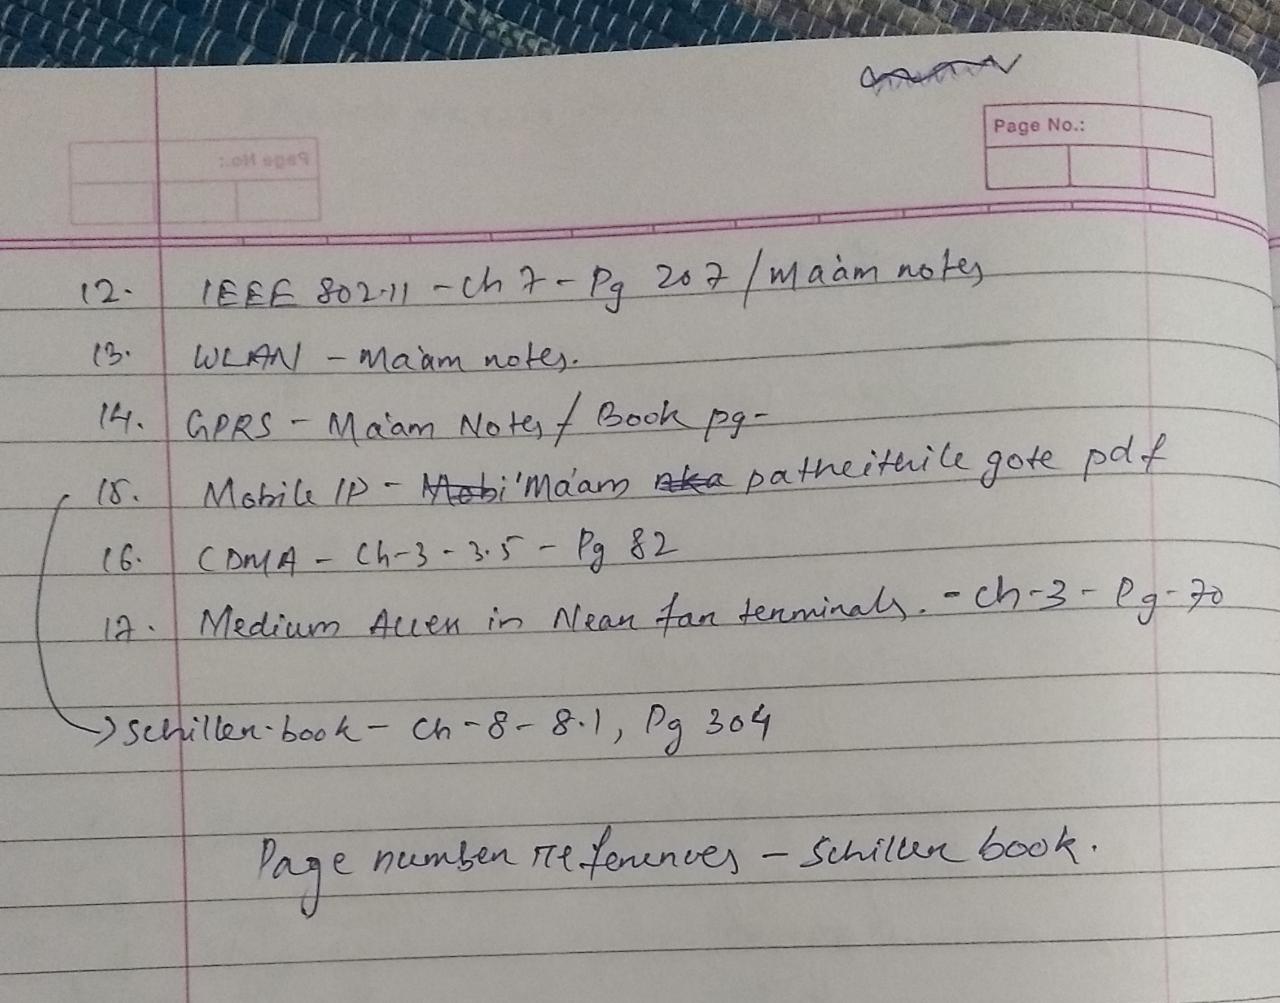 Page No.:
12. IEEE 802.11 - Ch 7 - Pg 207 / Ma'am notes
13. WLAN - Ma'am notes.
14. GPRS - Ma'am Notes / Book pg -
15. Mobile IP - Mobi Ma'am aka patheithile gote pdf
16. CDMA - Ch-3 - 3.5 - Pg 82
17. Medium Access in Near far terminals. - Ch-3 - Pg-70
→ Schiller book - Ch-8 - 8.1, Pg 304
Page number references - Schiller book.